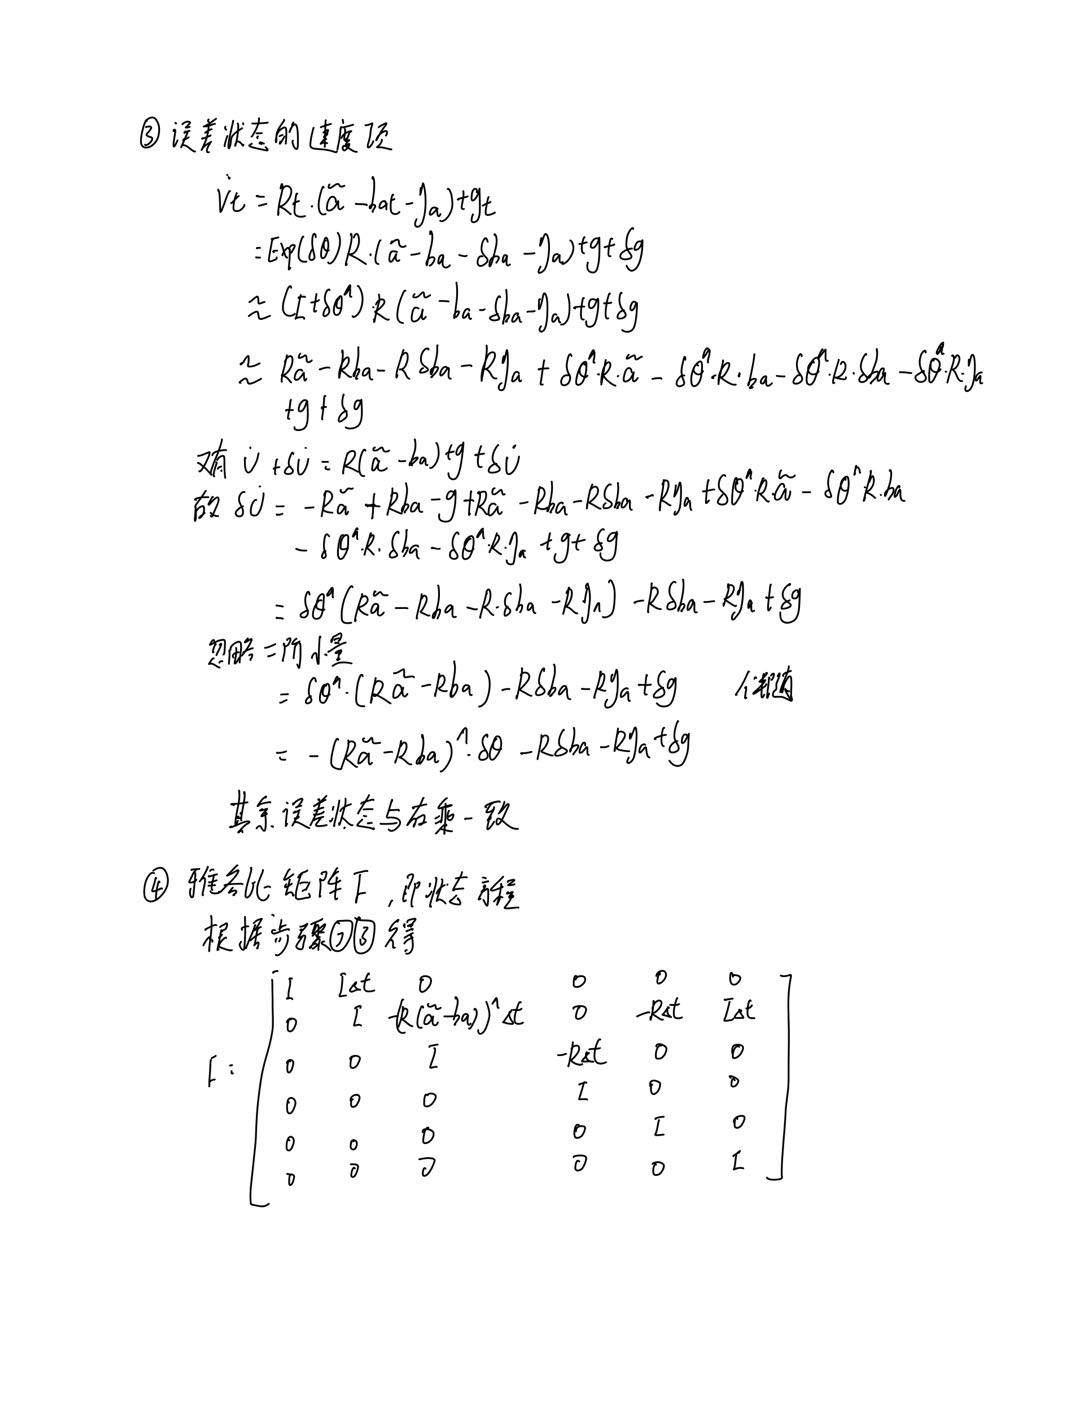 ③ 误差状态的速度项
v̇t = Rt·(ã - bat - ηa) + gt
= Exp(δθ)R·(ã - ba - δba - ηa) + g + δg
≈ (I + δθ^)R(ã - ba - δba - ηa) + g + δg
≈ Rã - Rba - Rδba - Rηa + δθ^·R·ã - δθ^·R·ba - δθ^·R·δba - δθ^·R·ηa
+ g + δg
又有 v̇ + δv̇ = R(ã - ba) + g + δv̇
故 δv̇ = -Rã + Rba - g + Rã - Rba - Rδba - Rηa + δθ^Rã - δθ^R·ba
- δθ^R·δba - δθ^R·ηa + g + δg
= δθ^(Rã - Rba - R·δba - Rηa) - Rδba - Rηa + δg
忽略二阶小量
= δθ^·(Rã - Rba) - Rδba - Rηa + δg
= -(Rã - Rba)^·δθ - Rδba - Rηa + δg
其余误差状态与右乘一致
④ 雅各比矩阵F,即状态方程
根据步骤②③得
I IΔt 0 0 0 0
0 I -(R(ã - ba))^Δt 0 -RΔt IΔt
F: 0 0 I -RΔt 0 0
0 0 0 I 0 0
0 0 0 0 I 0
0 0 0 0 0 I